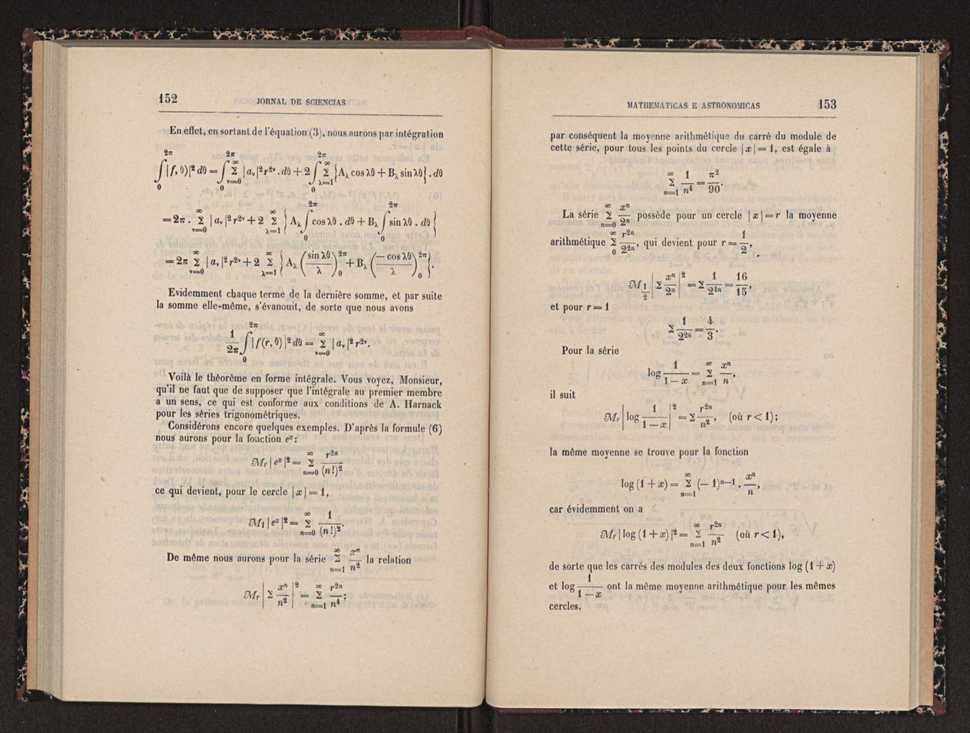 152 JORNAL DE SCIENCIAS
En effet, en sortant de l'équation (3), nous aurons par intégration
∫_0^{2π} |f, θ)|² dθ = ∫_0^{2π} Σ_{ν=0}^{∞} |a_ν|² r^{2ν} . dθ + 2 ∫_0^{2π} Σ_{λ=1}^{∞} {A_λ cos λθ + B_λ sin λθ} . dθ
= 2π . Σ_{ν=0}^{∞} |a_ν|² r^{2ν} + 2 Σ_{λ=1}^{∞} { A_λ ∫_0^{2π} cos λθ . dθ + B_λ ∫_0^{2π} sin λθ . dθ {
= 2π Σ_{ν=0}^{∞} |a_ν|² r^{2ν} + 2 Σ_{λ=1}^{∞} { A_λ (sin λθ / λ)_0^{2π} + B_λ (− cos λθ / λ)_0^{2π} }.
Evidemment chaque terme de la dernière somme, et par suite
la somme elle-même, s'évanouit, de sorte que nous avons
1/2π ∫_0^{2π} |f(r, θ)|² dθ = Σ_{ν=0}^{∞} |a_ν|² r^{2ν}.
Voilà le théorème en forme intégrale. Vous voyez, Monsieur,
qu'il ne faut que de supposer que l'intégrale au premier membre
a un sens, ce qui est conforme aux conditions de A. Harnack
pour les séries trigonométriques.
Considérons encore quelques exemples. D'après la formule (6)
nous aurons pour la fonction e^x:
ℳ_r |e^x|² = Σ_{n=0}^{∞} r^{2n} / (n!)²
ce qui devient, pour le cercle |x| = 1,
ℳ_1 |e^x|² = Σ_{n=0}^{∞} 1 / (n!)².
De même nous aurons pour la série Σ_{n=1}^{∞} x^n / n² la relation
ℳ_r | Σ x^n / n² |² = Σ_{n=1}^{∞} r^{2n} / n⁴;
MATHEMATICAS E ASTRONOMICAS 153
par conséquent la moyenne arithmétique du carré du module de
cette série, pour tous les points du cercle |x| = 1, est égale à
Σ_{n=1}^{∞} 1 / n⁴ = π² / 90.
La série Σ_{n=0}^{∞} x^n / 2^n possède pour un cercle |x| = r la moyenne
arithmétique Σ_0^{∞} r^{2n} / 2^{2n}, qui devient pour r = 1/2,
ℳ_{1/2} | Σ x^n / 2^n |² = Σ 1 / 2^{4n} = 16 / 15,
et pour r = 1
Σ 1 / 2^{2n} = 4 / 3.
Pour la série
log 1 / (1 − x) = Σ_{n=1}^{∞} x^n / n,
il suit
ℳ_r | log 1 / (1 − x) |² = Σ r^{2n} / n², (où r < 1);
la même moyenne se trouve pour la fonction
log (1 + x) = Σ_{n=1}^{∞} (− 1)^{n−1} . x^n / n,
car évidemment on a
ℳ_r | log (1 + x) |² = Σ_{n=1}^{∞} r^{2n} / n² (où r < 1),
de sorte que les carrés des modules des deux fonctions log (1 + x)
et log 1 / (1 − x) ont la même moyenne arithmétique pour les mêmes
cercles.